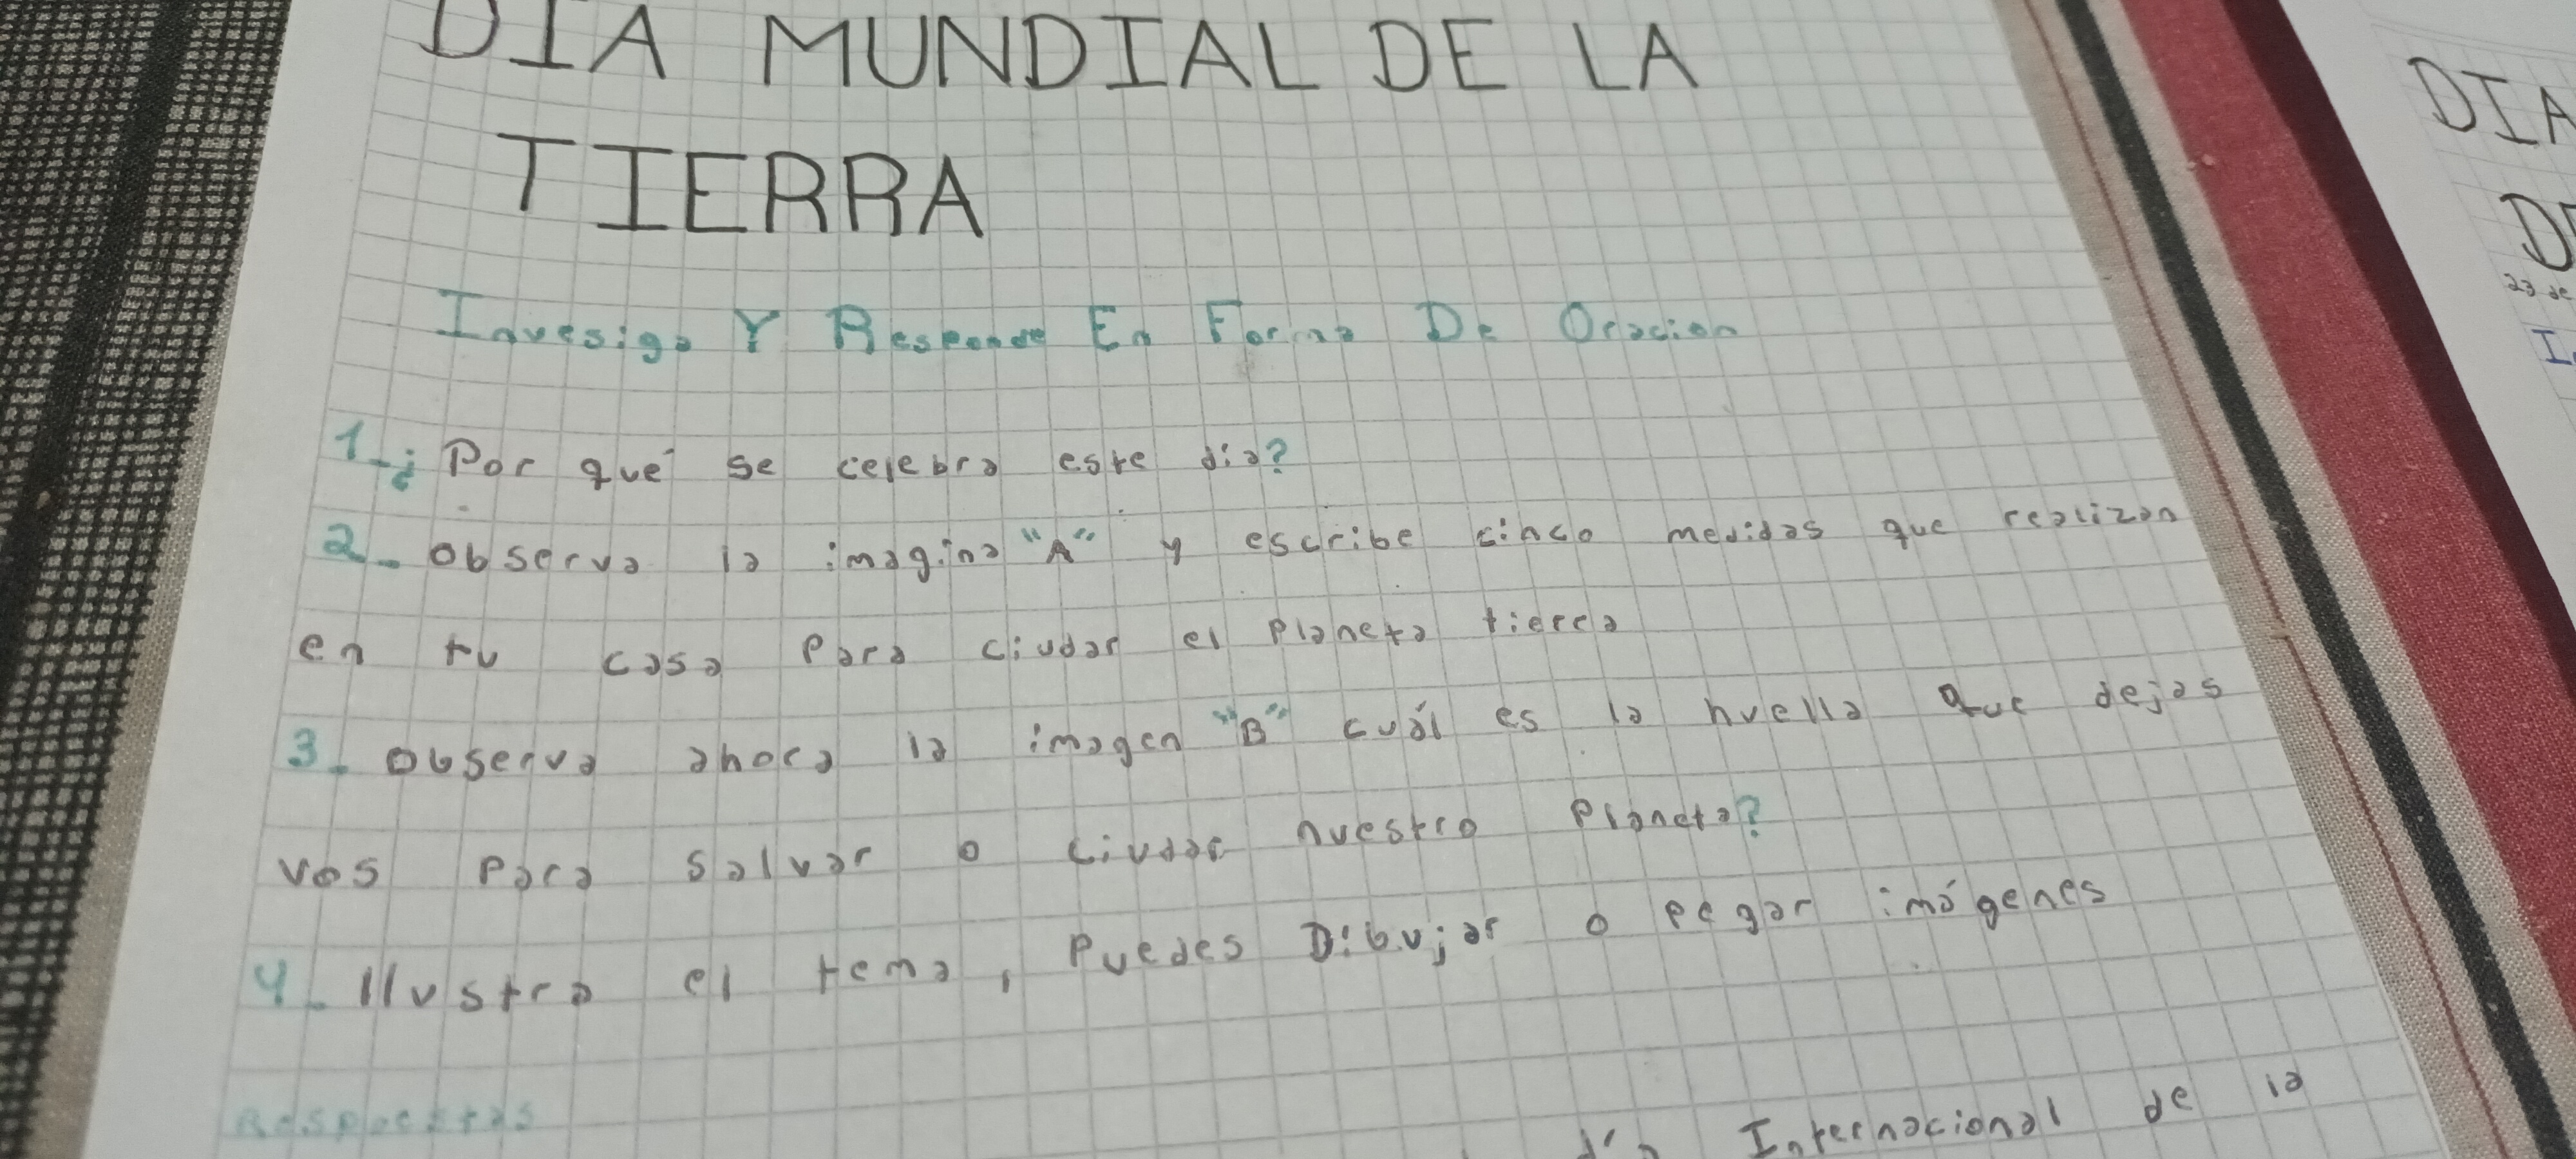 DIA MUNDIAL DE LA
TIERRA
Invesiga Y Responde En Forma De Oracion
1-¿Por qué se celebra este dia?
2-Observa la imagina "A" y escribe cinco medidas que realizan
en tu casa para ciudar el planeta tierra
3-Observa ahora la imagen "B" cuál es la huella que dejas
vos para salvar o ciudar nuestro planeta?
4-Ilustra el tema, Puedes Dibujar o pegar imágenes
Respuestas
Internacional de la
DIA
23 de